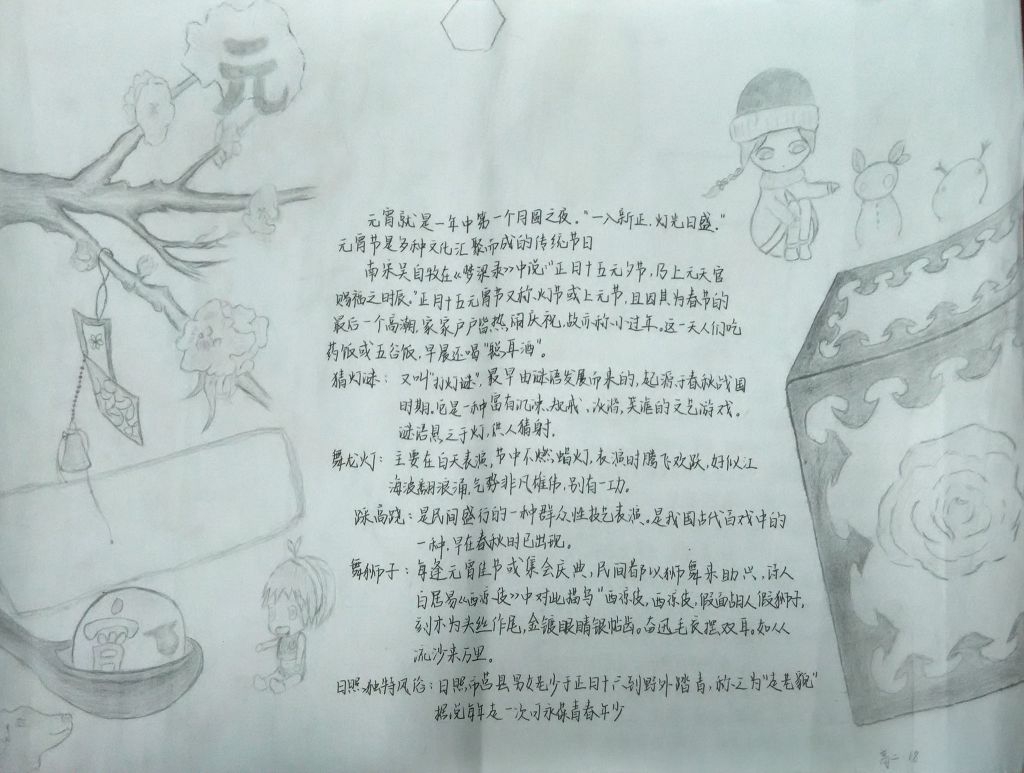 元
元宵就是一年中第一个月圆之夜。"一入新正,灯光日盛."
元宵节是多种文化汇聚而成的传统节日
南宋吴自牧在《梦梁录》中说:"正月十五元夕节,乃上元天官
赐福之时辰."正月十五元宵节又称灯节或上元节,且因其为春节的
最后一个高潮,家家户户皆热闹庆祝,故亦称小过年。这一天人们吃
药饭或五谷饭,早晨还喝"聪耳酒"。
猜灯谜: 又叫"打灯谜",最早由谜语发展而来的,起源于春秋战国
时期.它是一种富有讥谏、规戒、诙谐、笑谑的文艺游戏。
谜语悬之于灯,供人猜射.
舞龙灯: 主要在白天表演,节中不燃蜡灯,表演时腾飞欢跃,好似江
海波翻浪涌,气势非凡雄伟,别有一功。
踩高跷:是民间盛行的一种群众性技艺表演。是我国古代百戏中的
一种,早在春秋时已出现。
舞狮子:每逢元宵佳节或集会庆典,民间都以狮舞来助兴,诗人
白居易《西凉伎》中对此描写"西凉伎,西凉伎,假面胡人假狮子,
刻木为头丝作尾,金镀眼睛银帖齿。奋迅毛衣摆双耳。如从
流沙来万里。
日照独特风俗:日照市莒县男女老少于正月十六到野外踏青,称之为"走老貌"
据说每年走一次可永保青春年少
宵
高二 18